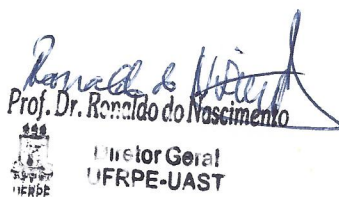 Ronaldo do Nascimento
Prof. Dr. Ronaldo do Nascimento
UFRPE
Diretor Geral
UFRPE-UAST